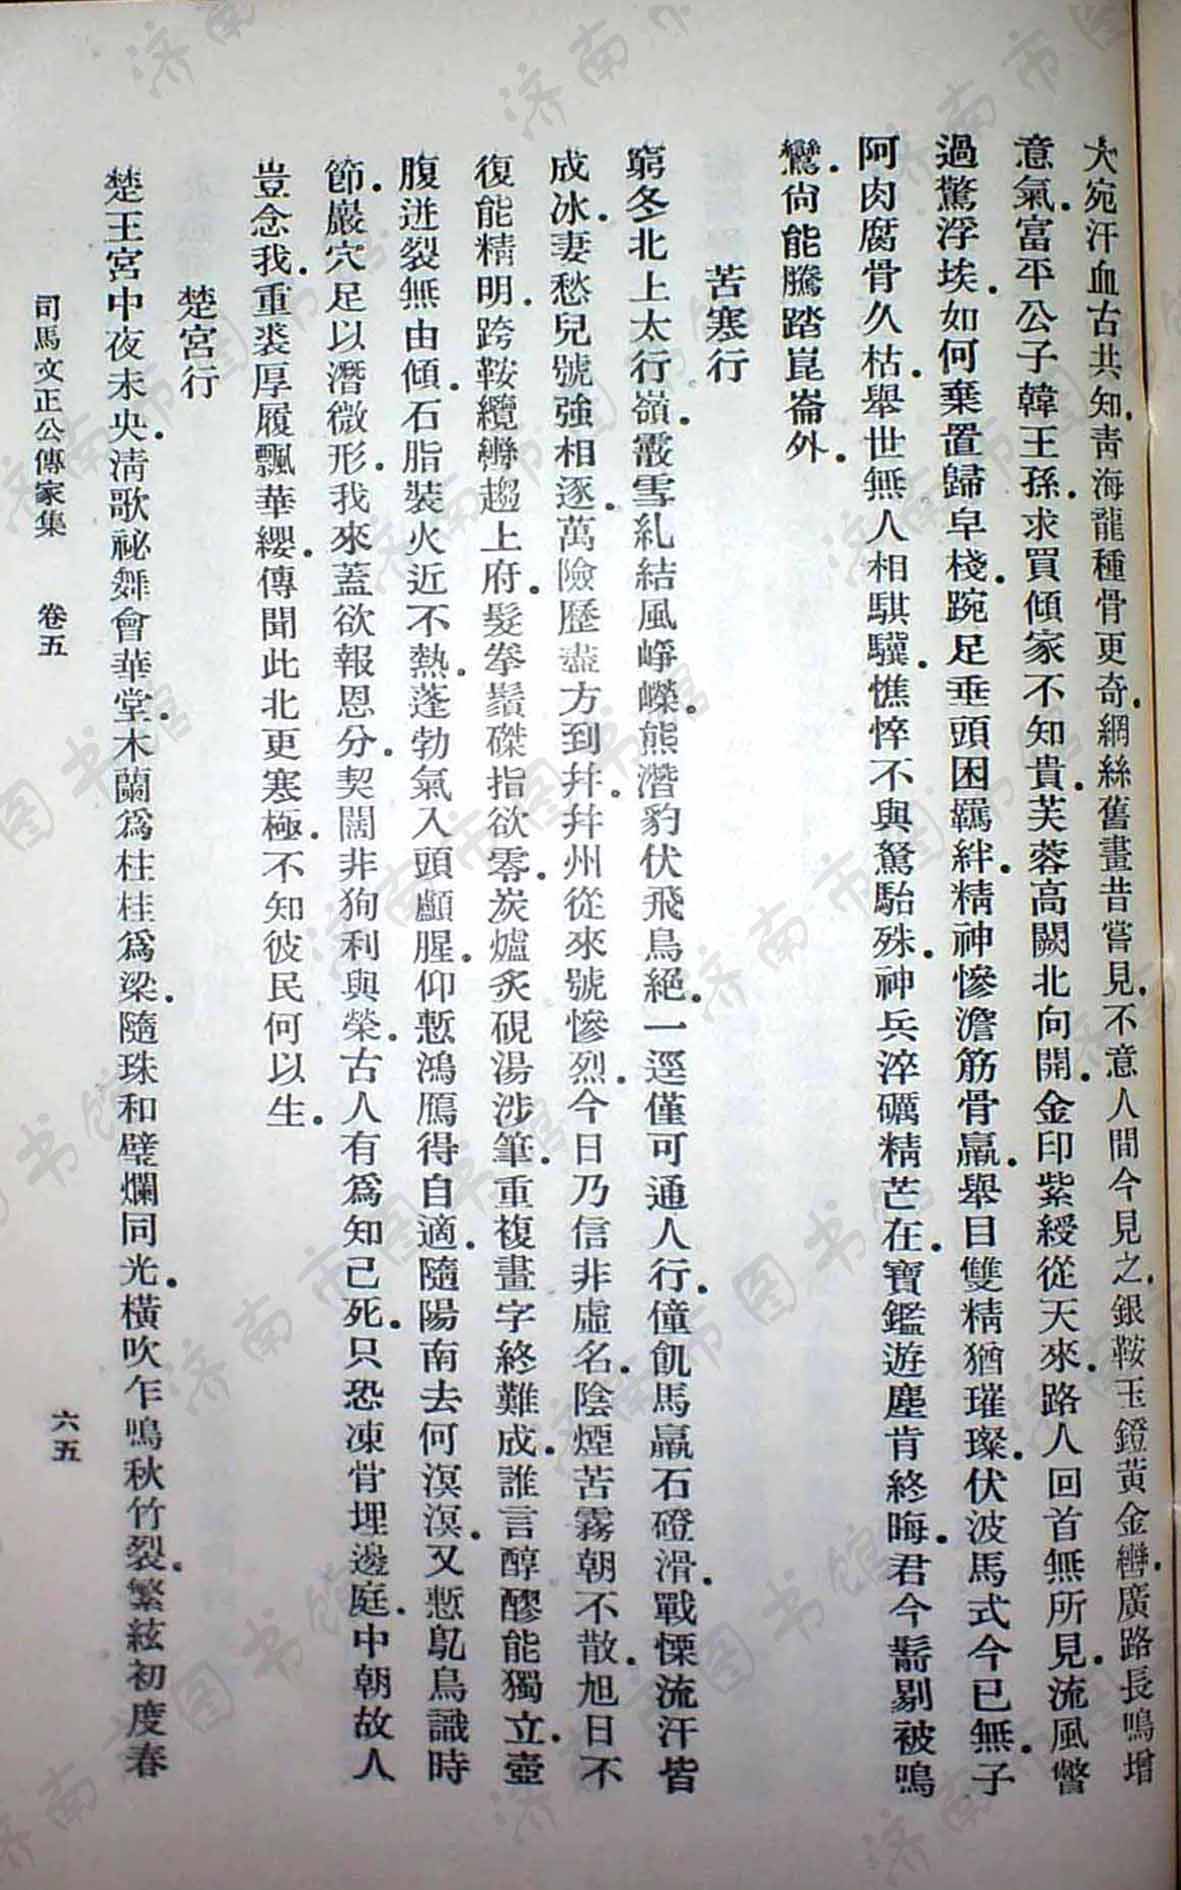 大宛汗血古共知．靑海龍種骨更奇．網絲舊畫昔嘗見．不意人間今見之．銀鞍玉鐙黃金轡．廣路長鳴增
意氣．富平公子韓王孫．求買傾家不知貴．芙蓉高闕北向開．金印紫綬從天來．路人回首無所見．流風瞥
過驚浮埃．如何棄置歸皁棧．踠足垂頭困羈絆．精神慘澹筋骨羸．舉目雙精猶璀璨．伏波馬式今已無．子
阿肉腐骨久枯．舉世無人相騏驥．憔悴不與駑駘殊．神兵淬礪精芒在．寶鑑遊塵肯終晦．君今鬋剔被鳴
鸞．尙能騰踏崑崙外．
苦寒行
窮冬北上太行嶺．霰雪糺結風崢嶸．熊潛豹伏飛鳥絕．一逕僅可通人行．僮飢馬羸石磴滑．戰慄流汗皆
成冰．妻愁兒號強相逐．萬險歷盡方到幷．幷州從來號慘烈．今日乃信非虛名．陰煙苦霧朝不散．旭日不
復能精明．跨鞍纜轡趨上府．髮拳鬚磔指欲零．炭爐炙硯湯涉筆．重複畫字終難成．誰言醇醪能獨立．壺
腹迸裂無由傾．石脂裝火近不熱．蓬勃氣入頭顱腥．仰慙鴻鴈得自適．隨陽南去何溟溟．又慙鳧鳥識時
節．巖穴足以潛微形．我來蓋欲報恩分．契闊非狥利與榮．古人有爲知己死．只恐凍骨埋邊庭．中朝故人
豈念我．重裘厚履飄華纓．傳聞此北更寒極．不知彼民何以生．
楚宮行
楚王宮中夜未央．淸歌祕舞會華堂．木蘭爲柱桂爲梁．隨珠和璧爛同光．橫吹乍鳴秋竹裂．繁絃初度春
司馬文正公傳家集　卷五　六五
济南市图书馆